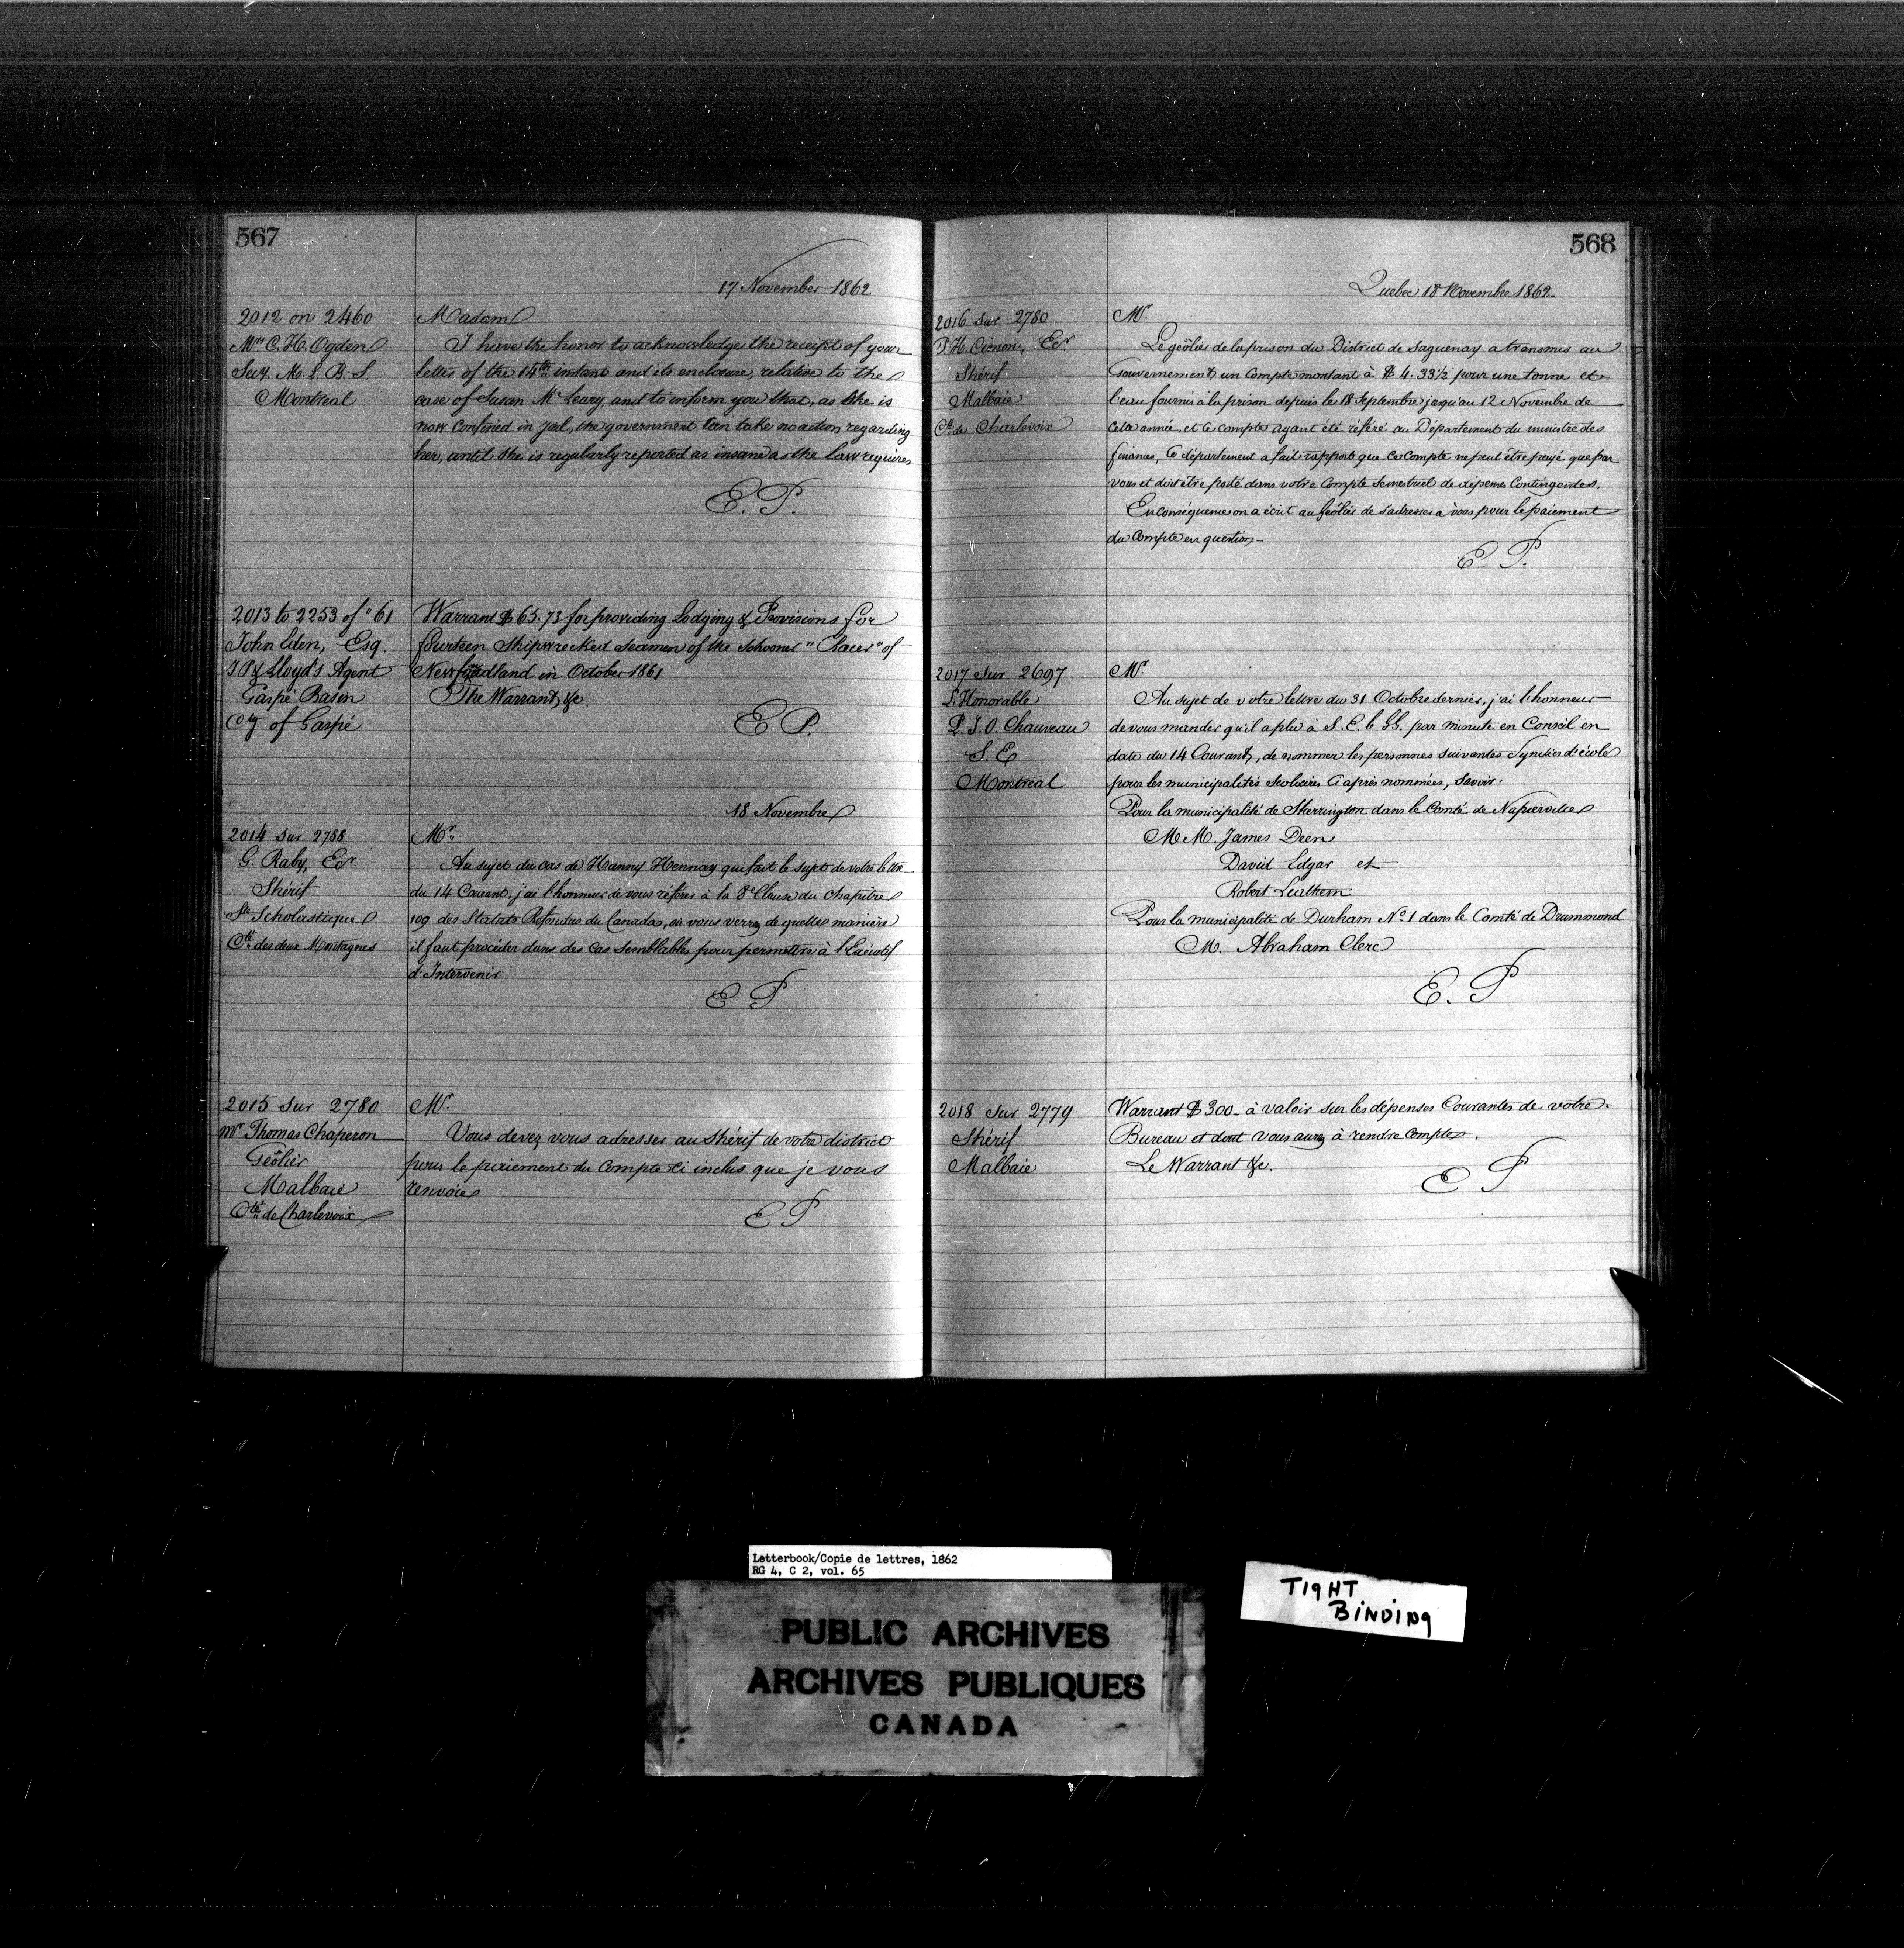 567
17 November 1862
2012 on 2460
Mrs C. H. Ogden
Secy. M. L. B. S.
Montreal
Madam
I have the honor to acknowledge the receipt of your
letter of the 14th instant and its enclosure, relative to the
case of Susan McLeary, and to inform you that, as She is
now Confined in Jail, the government Can take no action regarding
her, until She is regularly reported as insane as the Law requires
E. P.
2013 to 2253 of "61
John Eden, Esq.
J P & Lloyd's Agent
Gaspé Basin
Cy of Gaspé
Warrant $65.73 for providing Lodging & Provisions for
fourteen Shipwrecked Seamen of the Schooner "Racer" of
Newfoundland in October 1861
The Warrant, &c.
E P.
18 Novembre
2014 Sur 2788
G. Raby, Er
Shérif
Ste Scholastique
Cté des deux Montagnes
Mr.
Au sujet du cas de Hanny Hennay qui fait le sujet de votre lettre
du 14 Courant, j'ai l'honneur de vous référer à la 8e Clause du Chapitre
109 des Statuts Refondus du Canada, où vous verrez de quelle manière
il faut procéder dans des cas Semblables pour permettre à l'Exécutif
d'Intervenir
E P
2015 Sur 2780
Mr Thomas Chaperon
Geôlier
Malbaie
Cté de Charlevoix
Mr.
Vous devez vous adresser au Shérif de votre district
pour le paiement du Compte ci inclus que je vous
renvoie
E P
568
Quebec 18 Novembre 1862.
2016 Sur 2780
P. H. Cimon, Er
Shérif
Malbaie
Cté de Charlevoix
Mr.
Le geôlier de la prison du District de Saguenay a transmis au
Gouvernement un Compte montant à $4.33½ pour une tonne et
l'eau fournis à la prison depuis le 18 Septembre jusqu'au 12 Novembre de
cette année, et ce compte ayant été référé au Département du ministre des
finances, Ce département a fait rapport que Ce Compte ne peut être payé que par
vous et doit être porté dans votre Compte Semestriel de dépenses Contingentes.
En conséquence on a écrit au Geôlier de s'adresser à vous pour le paiement
du Compte en question_
E. P.
2017 Sur 2697
L'Honorable
P. J. O. Chauveau
S. E
Montreal
Mr.
Au sujet de votre lettre du 31 Octobre dernier, j'ai l'honneur
de vous mander qu'il a plu à S. E. le GG. par minute en Conseil en
date du 14 Courant, de nommer les personnes suivantes Syndics d'école
pour les municipalités scolaires Ci après nommées, Savoir.
Pour la municipalité de Sherrington dans le Comté de Napierville
M M. James Deen
David Edgar et
Robert Leathem
Pour la municipalité de Durham No 1 dans le Comté de Drummond
M. Abraham Clerc
E. P
2018 Sur 2779
Shérif
Malbaie
Warrant $300_ à valoir sur les dépenses Courantes de votre
Bureau et dont Vous aurez à rendre Compte.
Le Warrant &c.
E P
Letterbook/Copie de lettres, 1862
RG 4, C 2, vol. 65
PUBLIC ARCHIVES
ARCHIVES PUBLIQUES
CANADA
TIGHT
BINDING